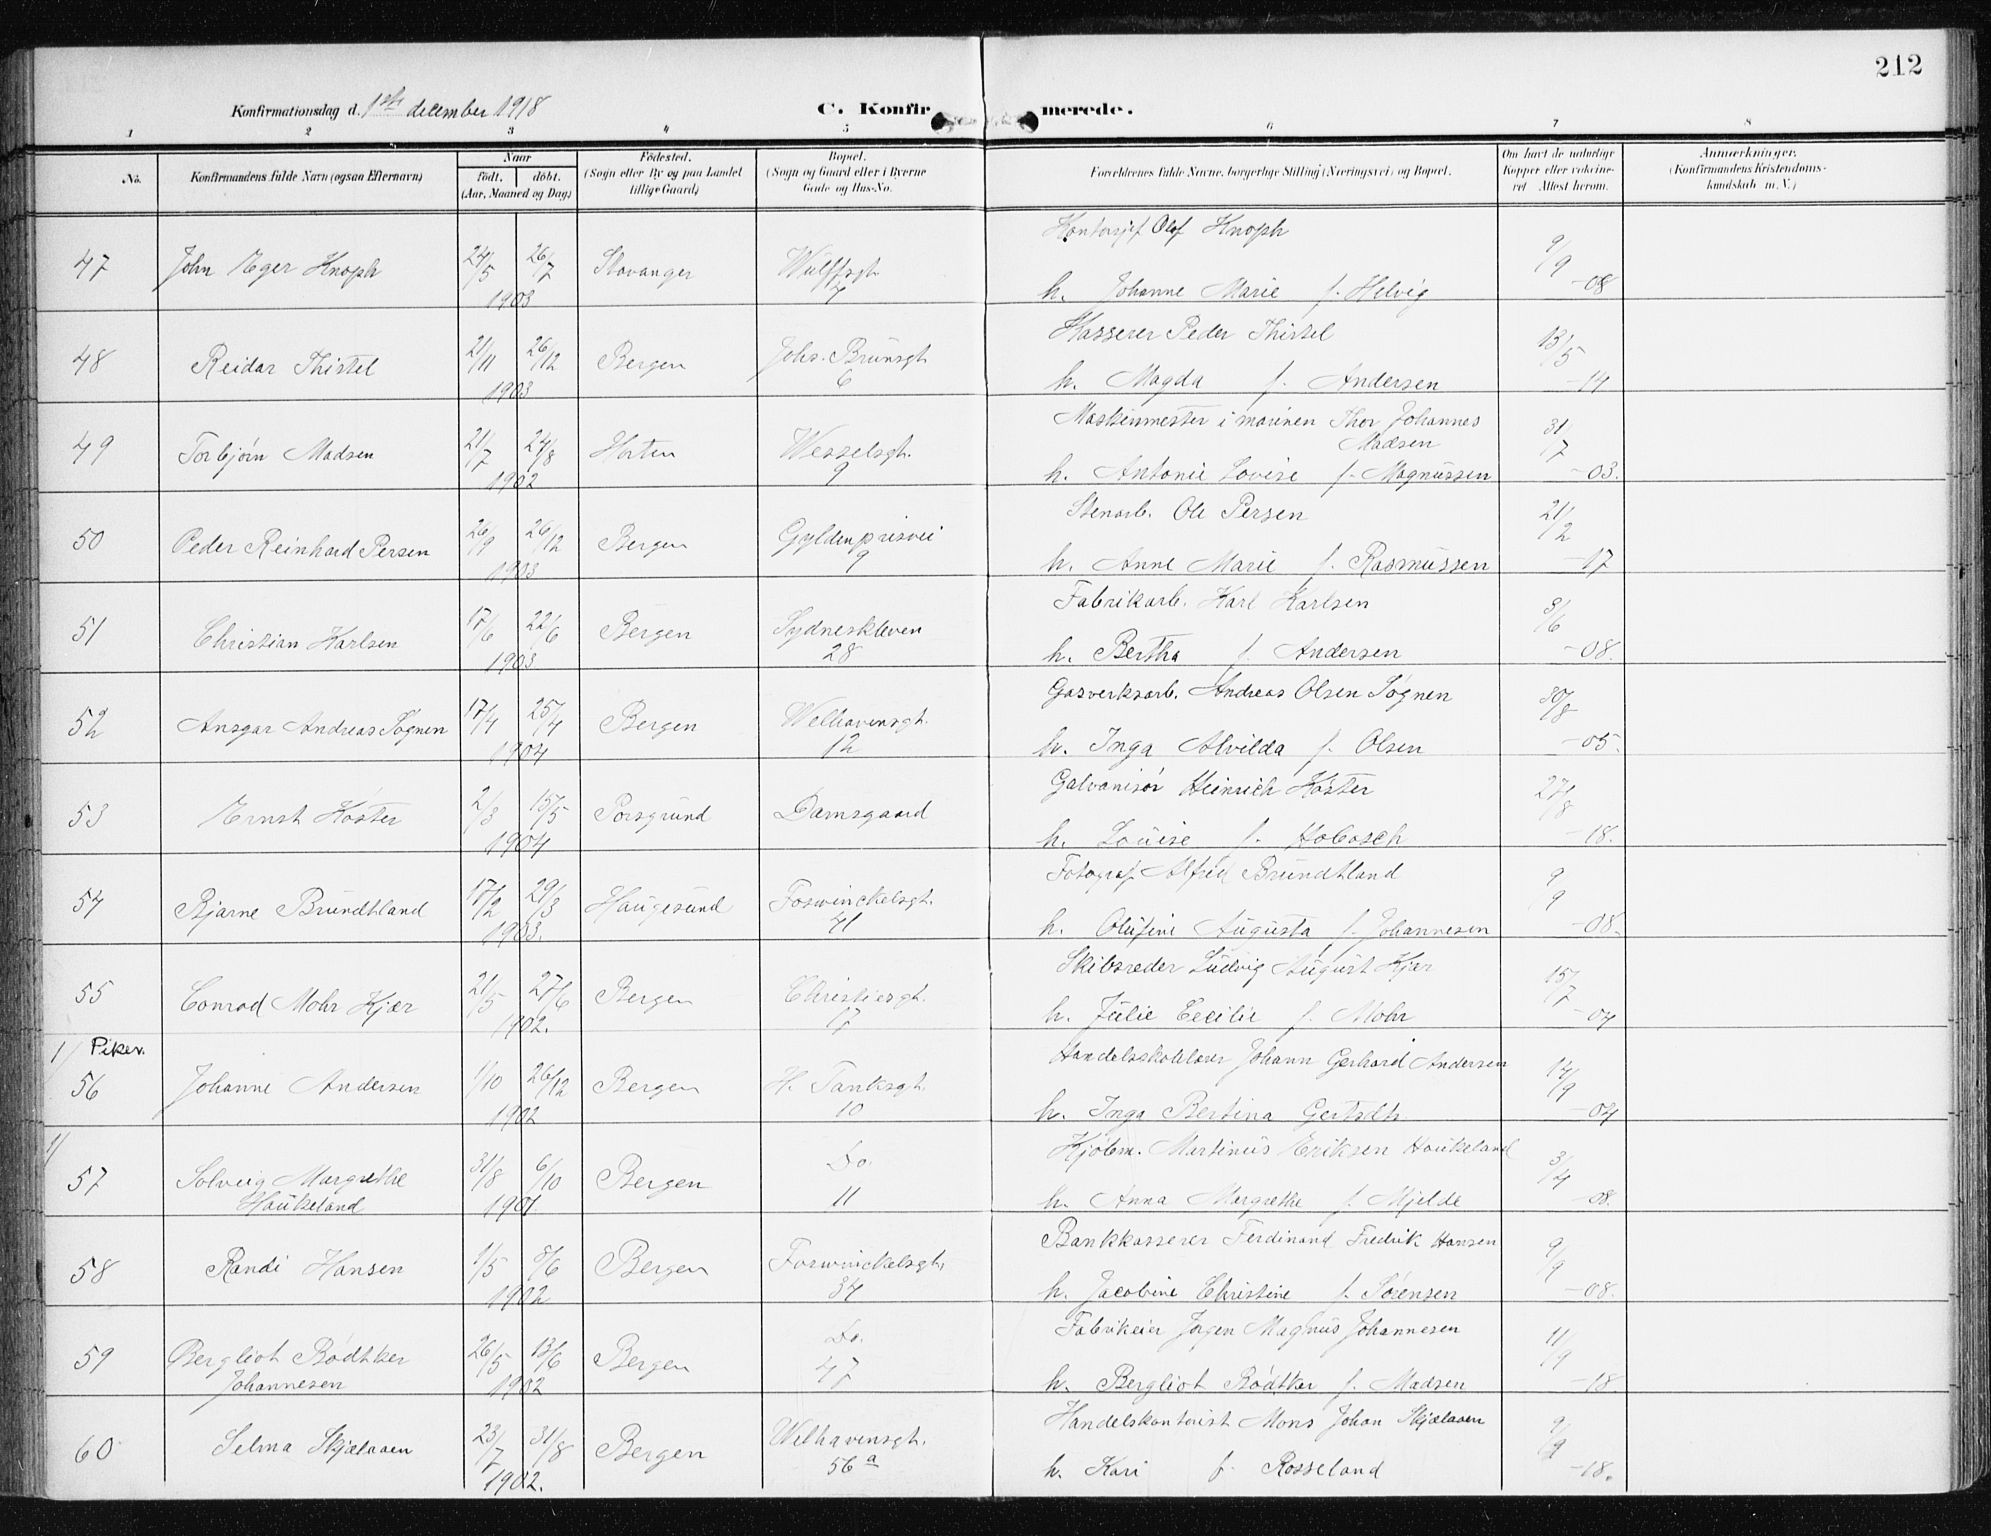 212
Konfirmationsdag d. 1ste december 1918 C. Konfirmerede.
1 2 3 4 5 6 7 8
No. Konfirmandens fulde Navn (ogsaa Efternavn) Naar født. døbt. (Aar, Maaned og Dag) Fødested. (Sogn eller By og paa Landet tillige Gaard) Bopæl. (Sogn og Gaard eller i Byerne Gade og Hus-No. Forældrenes fulde Navne, borgerlige Stilling (Næringsvei) og Bopæl. Om havt de naturlige Kopper eller vaksineret. Attest herom. Anmærkninger. (Konfirmandens Kristendomskundskab m. V.)
Kontorsjef Olof Knoph
47 John Eger Knoph 24/5 26/7 Stavanger Wulffsgt. 9/9
1903 7 h. Johanne Marie f. Helvig -08
Kasserer Peder Thistel
48 Reidar Thistel 21/11 26/12 Bergen Johs. Brunsgt. 13/5
1903 6 h. Magda f. Andersen -14
Maskinmester i marinen Thor Johannes
Madsen
49 Torbjørn Madsen 21/7 24/8 Horten Wesselsgt. 31/7
1902 9 h. Antonie Lovise f. Magnussen -03.
Stenarb. Ole Persen
50 Peder Reinhard Persen 26/9 26/12 Bergen Gyldenprisvei 21/2
1903 9 h. Anne Marie f. Rasmussen -17
Fabrikarb. Karl Karlsen
51 Christian Karlsen 17/6 22/6 Bergen Sydneskleven 8/6
1903 28 h. Bertha f. Andersen -08.
Gasverksarb. Andreas Olsen Søgnen
52 Ansgar Andreas Søgnen 17/4 25/4 Bergen Welhavensgt. 30/8
1904 12 h. Inga Alvilda f. Olsen -05.
Galvanisør Heinrich Köster
53 Ernst Köster 2/3 15/5 Porsgrund Damsgaard 27/8
1904 h. Louise f. -18.
Fotograf Alfred Brundtland
54 Bjarne Brundtland 17/2 29/3 Haugesund Foswinckelsgt. 9/9
1903. 41 h. Olufine Augusta f. Johannesen -08.
Skibsreder Ludvig August Kjær
55 Conrad Mohr Kjær 21/5 27/6 Bergen Christiesgt. 15/7
1902. 17 h. Julie Cecilie f. Mohr -04
1/ Piker.
Handelsskolelærer Johann Gerhard Andersen
56 Johanne Andersen 1/10 26/12 Bergen H. Tanksgt. 14/9
1902 10 h. Inga Bertina -04
1/
Kjøbm. Martinus Eriksen Haukeland
57 Solveig Margrethe 31/8 6/10 Bergen Do. 3/4
Haukeland 1901 11 h. Anna Margrethe f. Mjelde -08.
Bankkasserer Ferdinand Fredrik Hansen
58 Randi Hansen 1/5 8/6 Bergen Foswinckelsgt. 9/9
1902 34 h. Jacobine Christine f. Sørensen -08.
Fabrikeier Jørgen Magnus Johannesen
59 Bergliot Bødtker 26/5 13/6 Bergen Do. 11/9
Johannesen 1902 47 h. Bergliot Bødtker f. Madsen -18.
Handelskontorist Mons Johan Skjælaaen
60 Selma Skjælaaen 23/7 31/8 Bergen Welhavensgt. 9/9
1902. 56 a h. Kari f. Rosseland -18.